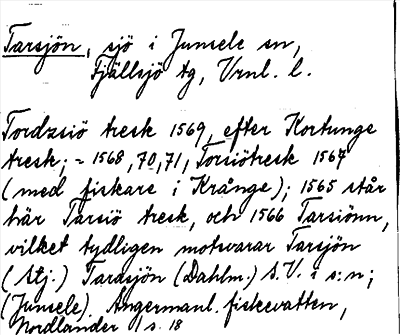 Tarsjön, sjö i Junsele sn,
Fjällsjö tg, Vrnl. l.
Tordzsiö tresk 1569, efter Kortunge
tresk; - 1568, 70, 71, Torsiötresk 1567
(med fiskare i Krånge); 1565 står
här Tarsiö tresk, och 1566 Tarsiönn,
vilket tydligen motsvarar Tarsjön
(Stj.) Taradsjön (Dahlm.) S.V. i s:n;
(Junsele). Ångermanl. fiskevatten,
Nordlander s. 18